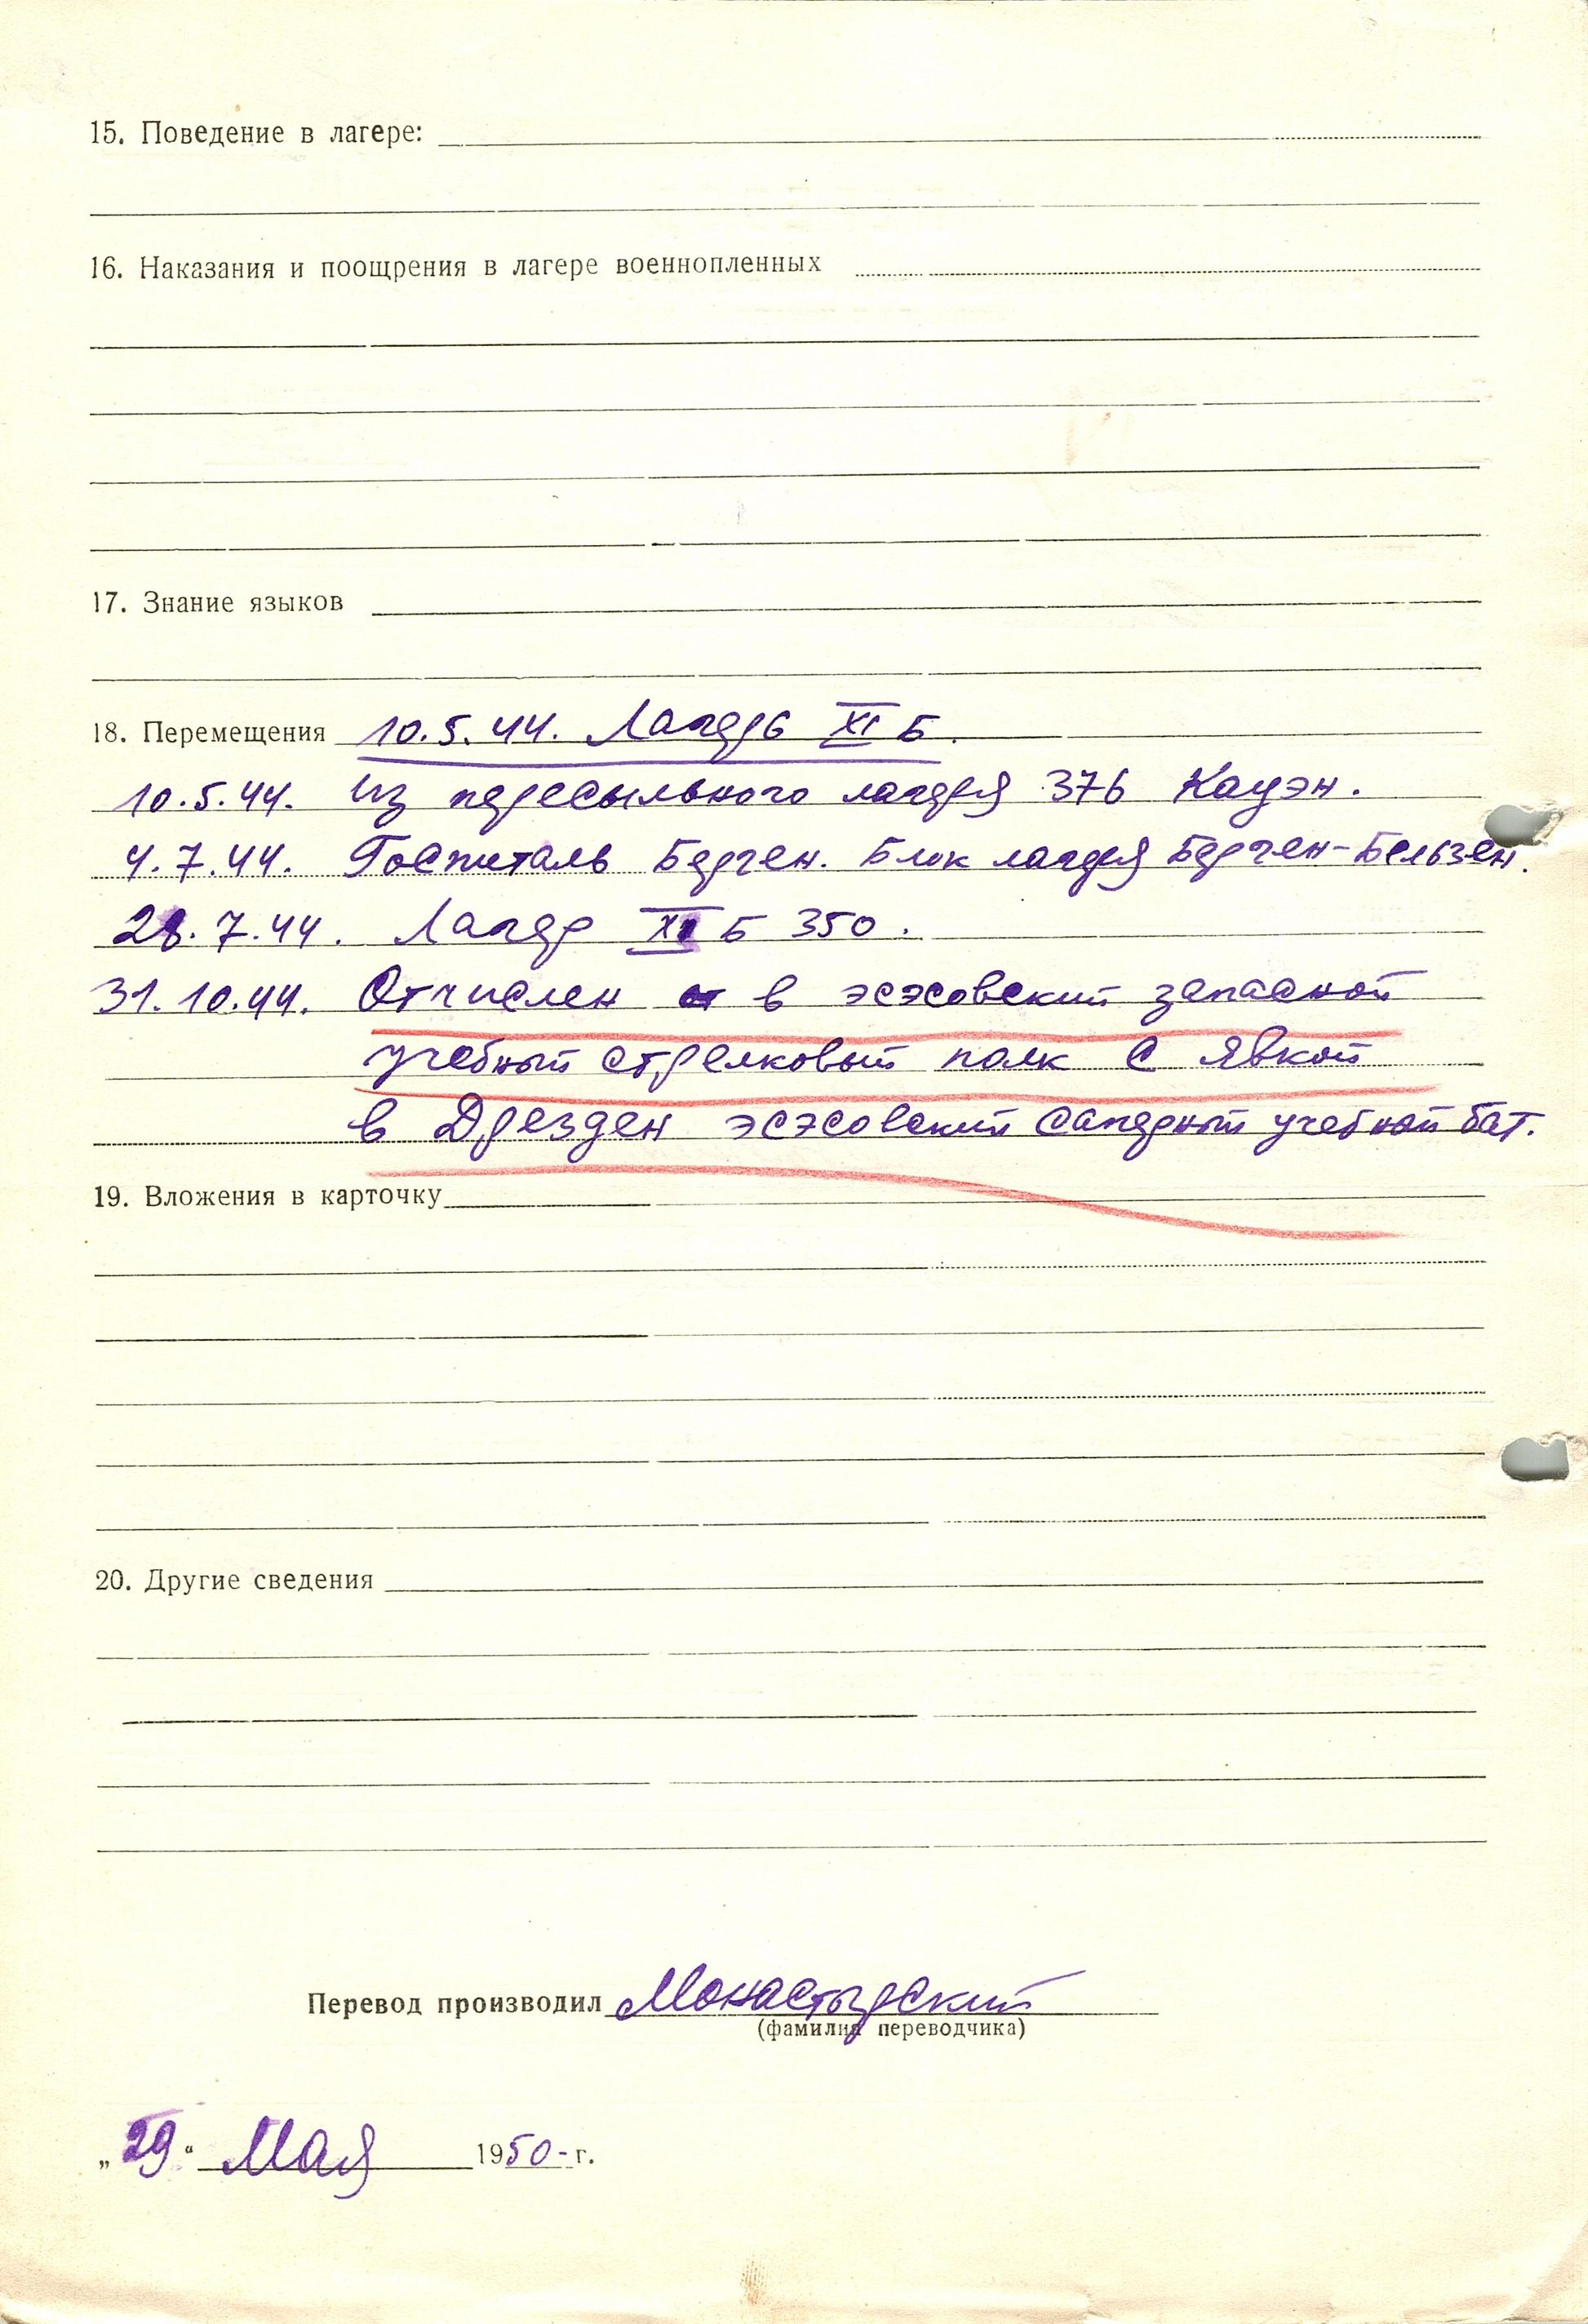 15. Поведение в лагере:
16. Наказания и поощрения в лагере военнопленных
17. Знание языков
18. Перемещения 10.5.44. Лагерь XI Б.
10.5.44. Из пересыльного лагеря 376 Кауэн.
4.7.44. Госпиталь Берген. Блок лагеря Берген-Бельзен.
28.7.44. Лагерь XI Б 350.
31.10.44. Отчислен в эсэсовский запасной
учебный стрелковый полк с явкой
в Дрезден эсэсовский саперный учебный бат.
19. Вложения в карточку
20. Другие сведения
Перевод производил Монастырский
(фамилия переводчика)
„29“ Мая 1950-г.